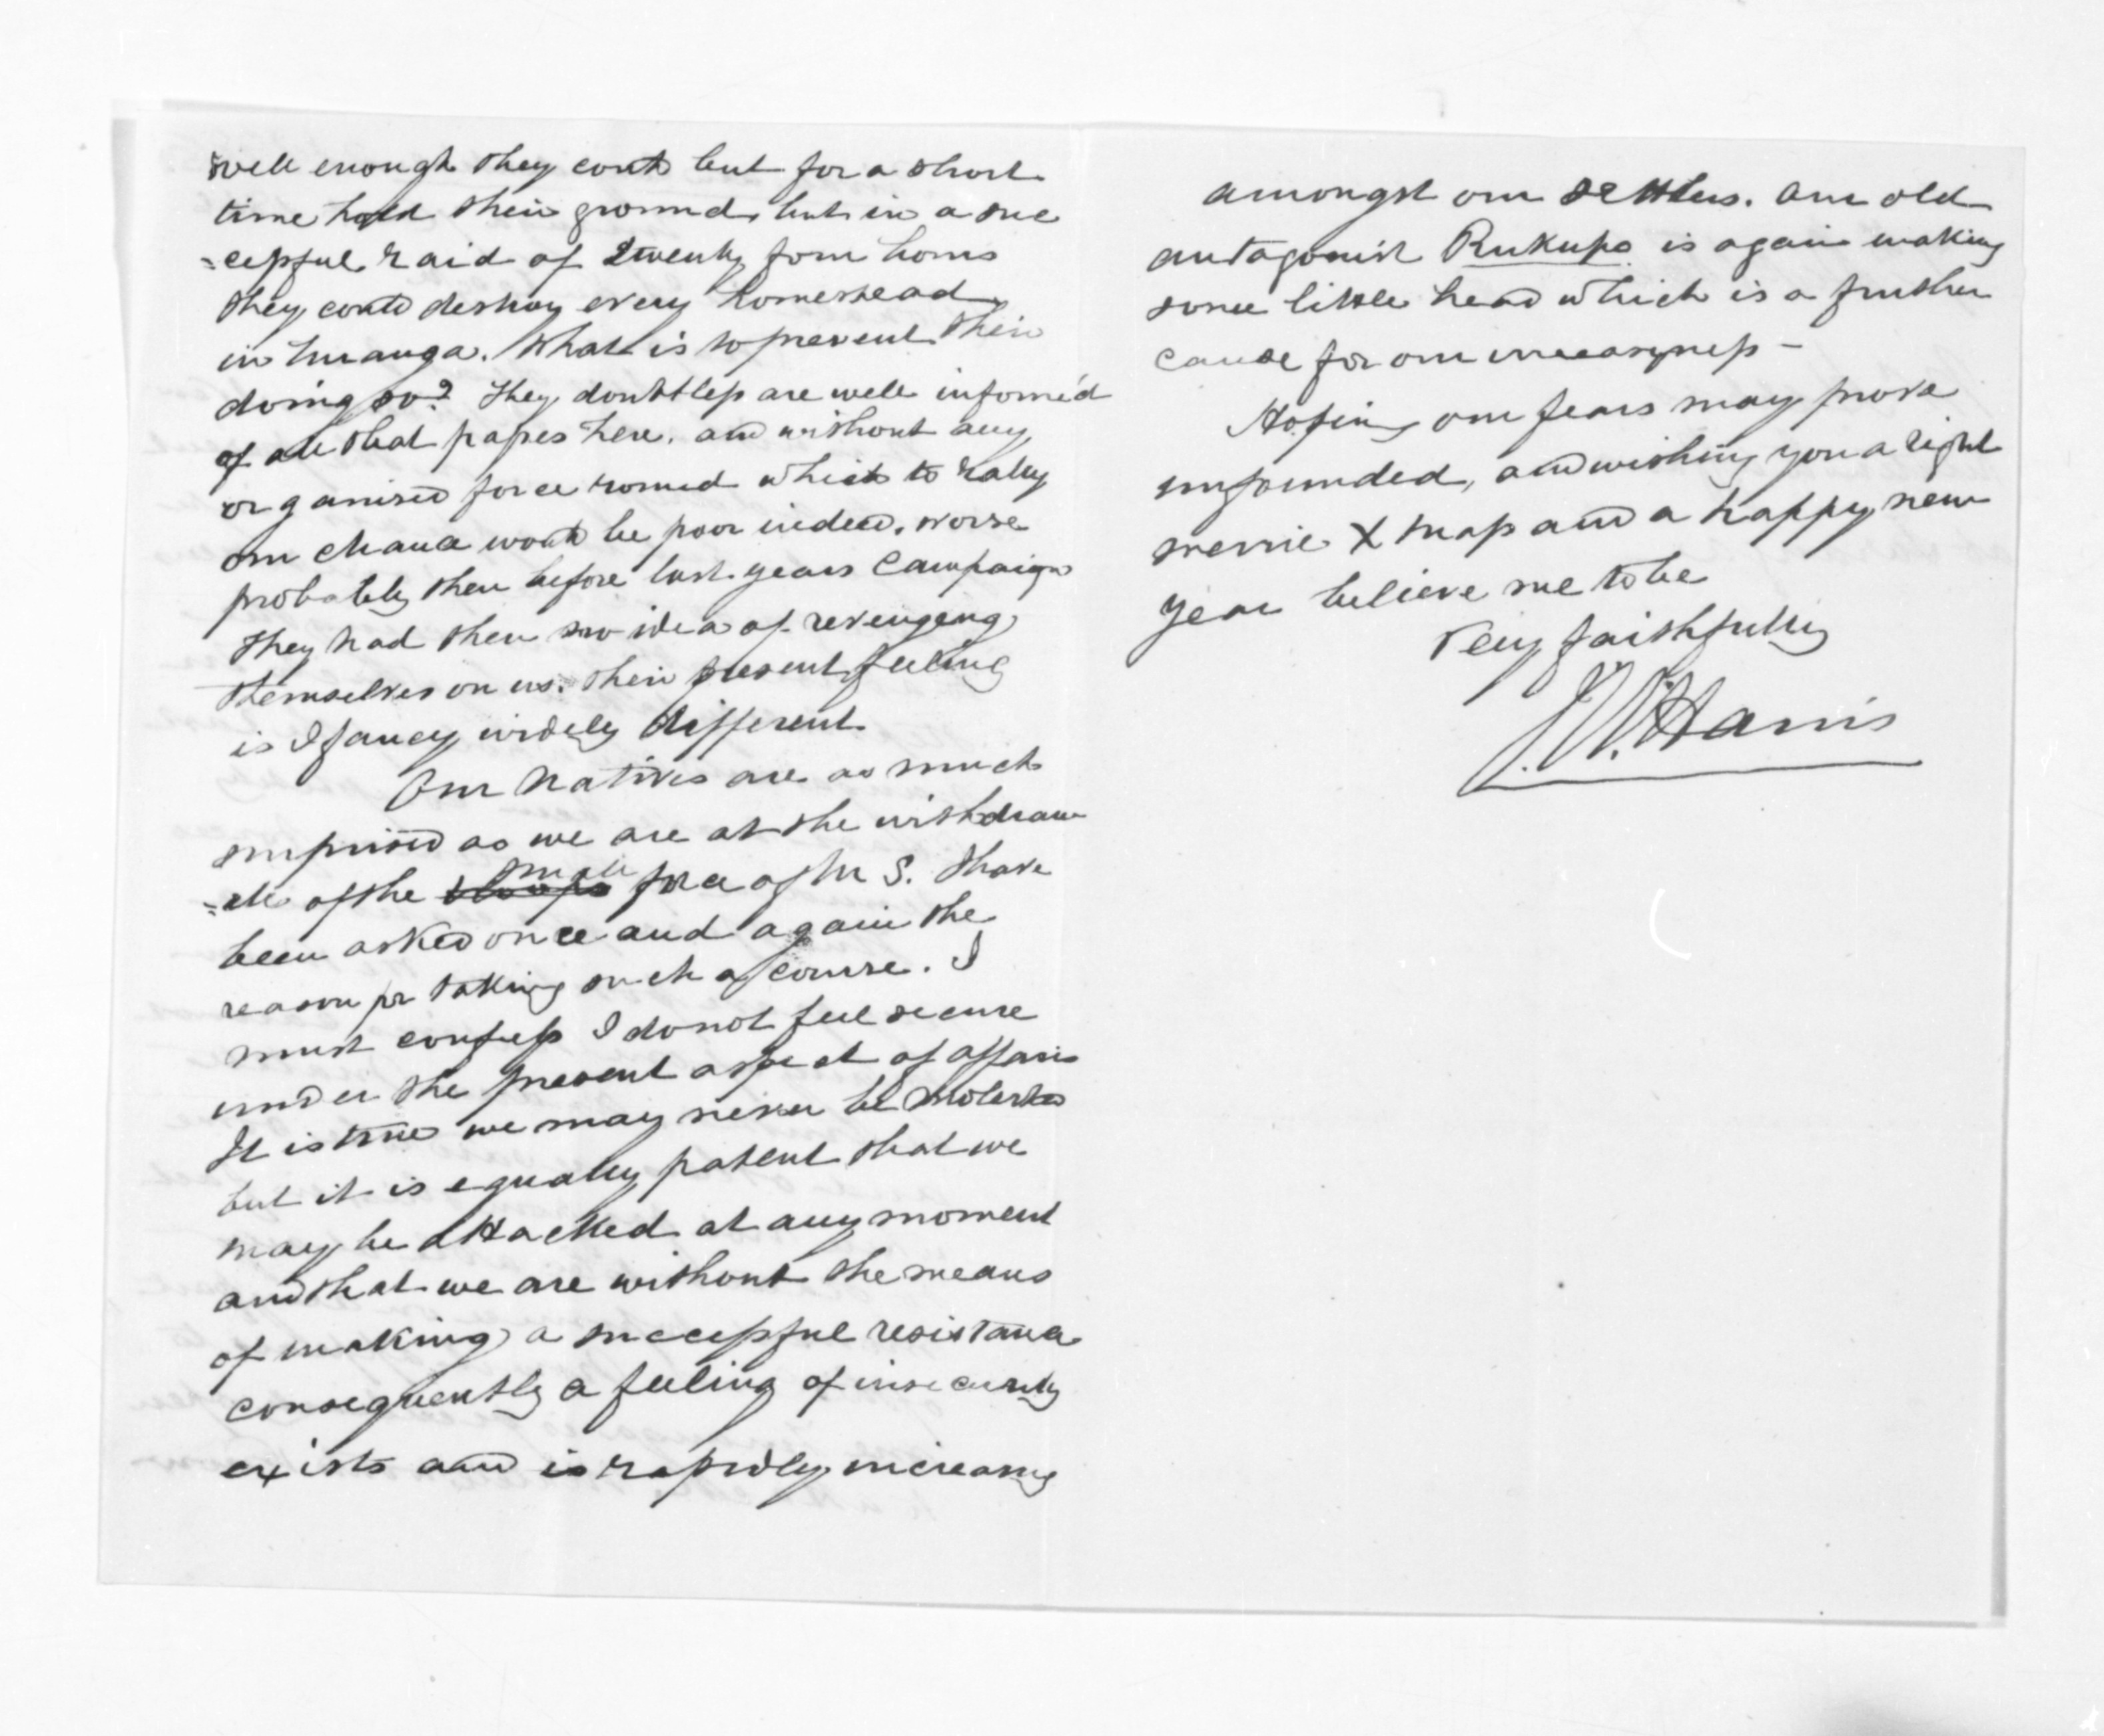 well enough they could but for a short
time hold their ground, but in a suc
=cessful raid of twenty four hours
they could destroy every homestead
in Turanga. What is to prevent their
doing so? They doubtless are well inform'd
of all that passes here. and without any
organised force round which to rally
our chance would be poor indeed. worse
probably then before last years Campaign
They had then no idea of revenging
themselves on us. their present feeling
is I fancy widely different
Our Natives are as much
surprised as we are at the withdraw
=al of the troops small force of M S. I have
been asked once and again the
reason for taking such a course. I
must confess I do not feel secure
under the present aspect of affairs
It is true we may never be molested
but it is equally patent that we
may be attacked at any moment
and that we are without the means
of making a successful resistance
consequently a feeling of insecurity
exists and is rapidly increasing
amongst our settlers. Our old
antagonist Rukupo is again making
some little head which is a further
cause for our uneasyness –
Hoping our fears may prove
unfounded, and wishing you a right
merrie X mass and a happy new
year believe me to be
Very faithfully
J. W. Harris